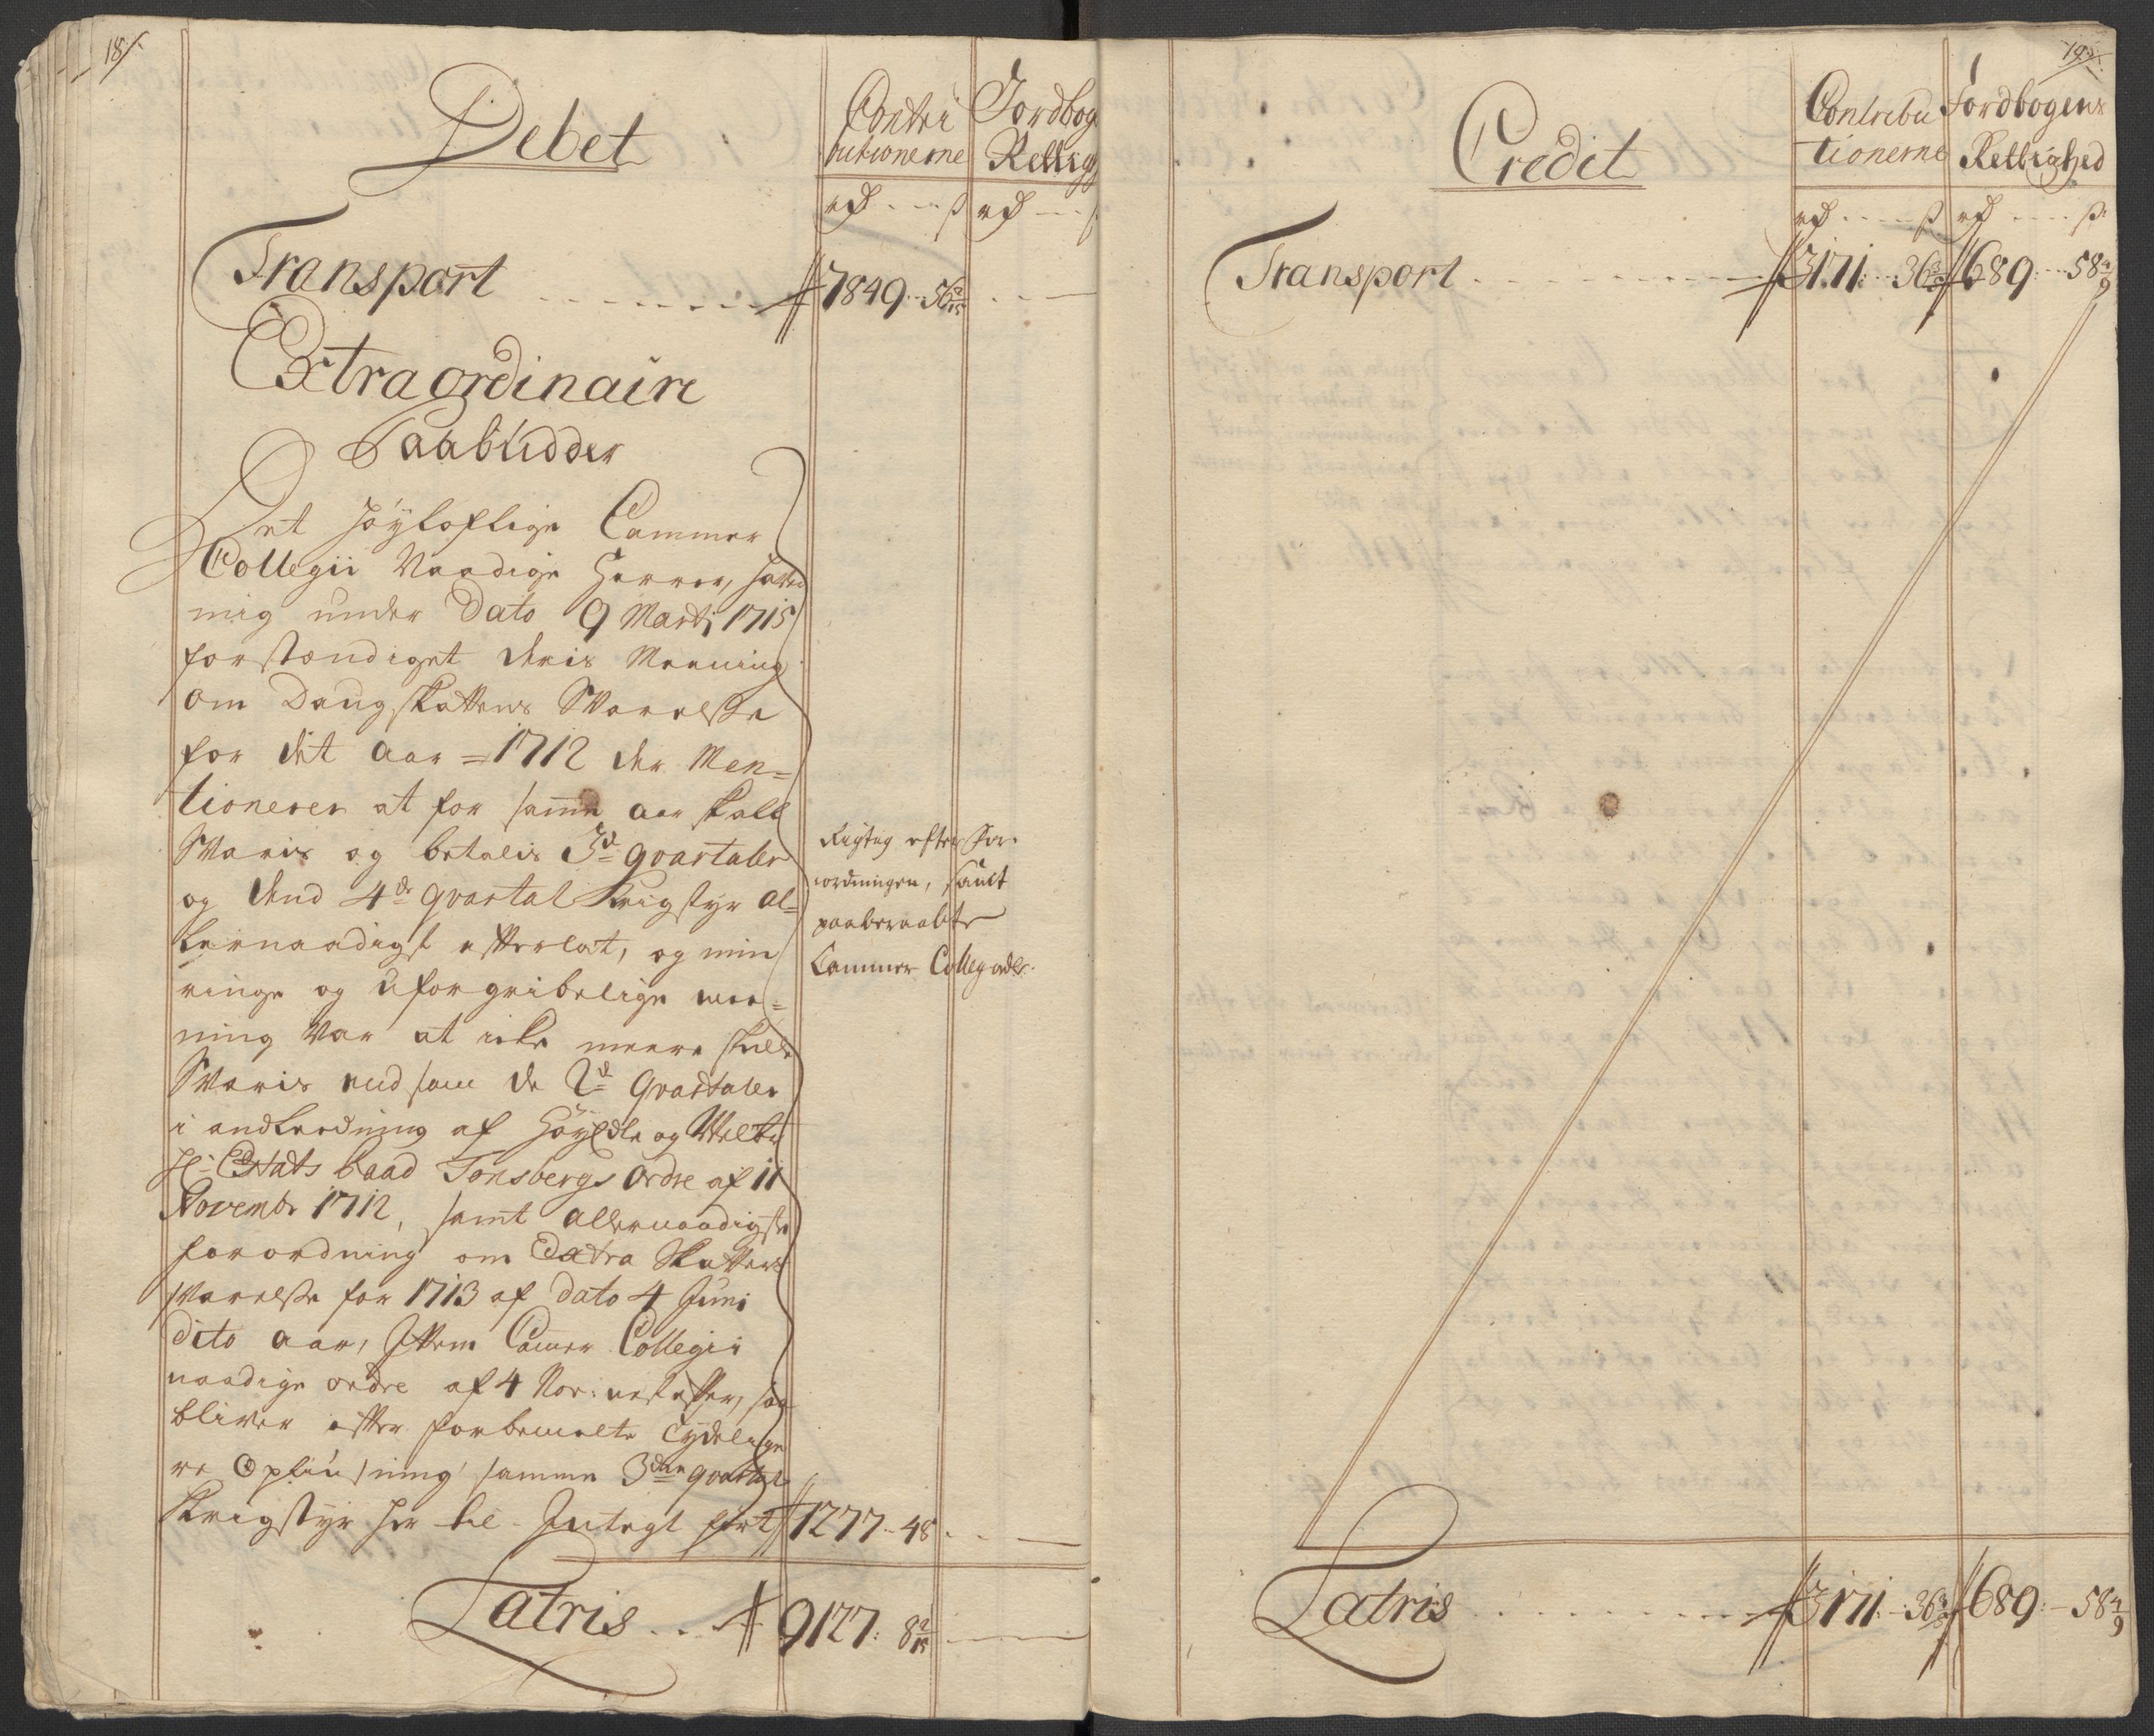 18/.
Debet
Contri
butionerne
Jordbog
Rettigh
rd - - ß
rd - - ß
Transport - - - - - 7849 - 56 2/15 - - -
Extraordinaire
Paabudder
Det Høyloflige Cammer
Collegii Naadige Herrer, hafer
mig under Dato 9 Martj 1715
forstændiget deris Meening
om Daugskattens Svarelse
for dit Aar = 1712 der Men=
tionerer at for samme aar skall
Svaris og betalis 3de qvartaler
og dend 4de qvartal Krigstyr al=
lernaadigst efterlat, og min
ringe og uforgribelige mee=
ning var at icke meere skulle
Svaris end som de 2de Qvartaler
i andledning af Høyædle og Welb:
Hr: Etats Raad Tonsbergs Ordre af 11
Novembr 1712, samt allernaadigste
forordning om Extra Skattens
Svarelse for 1713 af dato 4 Juni
dito aar, Jttem Camer Collegii
naadige ordre af 4 Nov: nestefter, saa
bliver efter forbemelte tydelige
re Opliusning samme 3de qvartal
Krigstyr her til Indtegt ført 1277 - 48 - - -
Rigtig efter For-
ordningen, samt
paaberaabte
Cammer Colleg ordre.
Latris - - 9127: 8 2/15 - - -
19/.
Credit
Contribu
tionerne
Jordbogens
Rettighed
rd - - - ß
rd - - - ß
Transport - - - - - 3171: 36 689: - 58
Latris - - - - - 3171: - 36 689: - 58